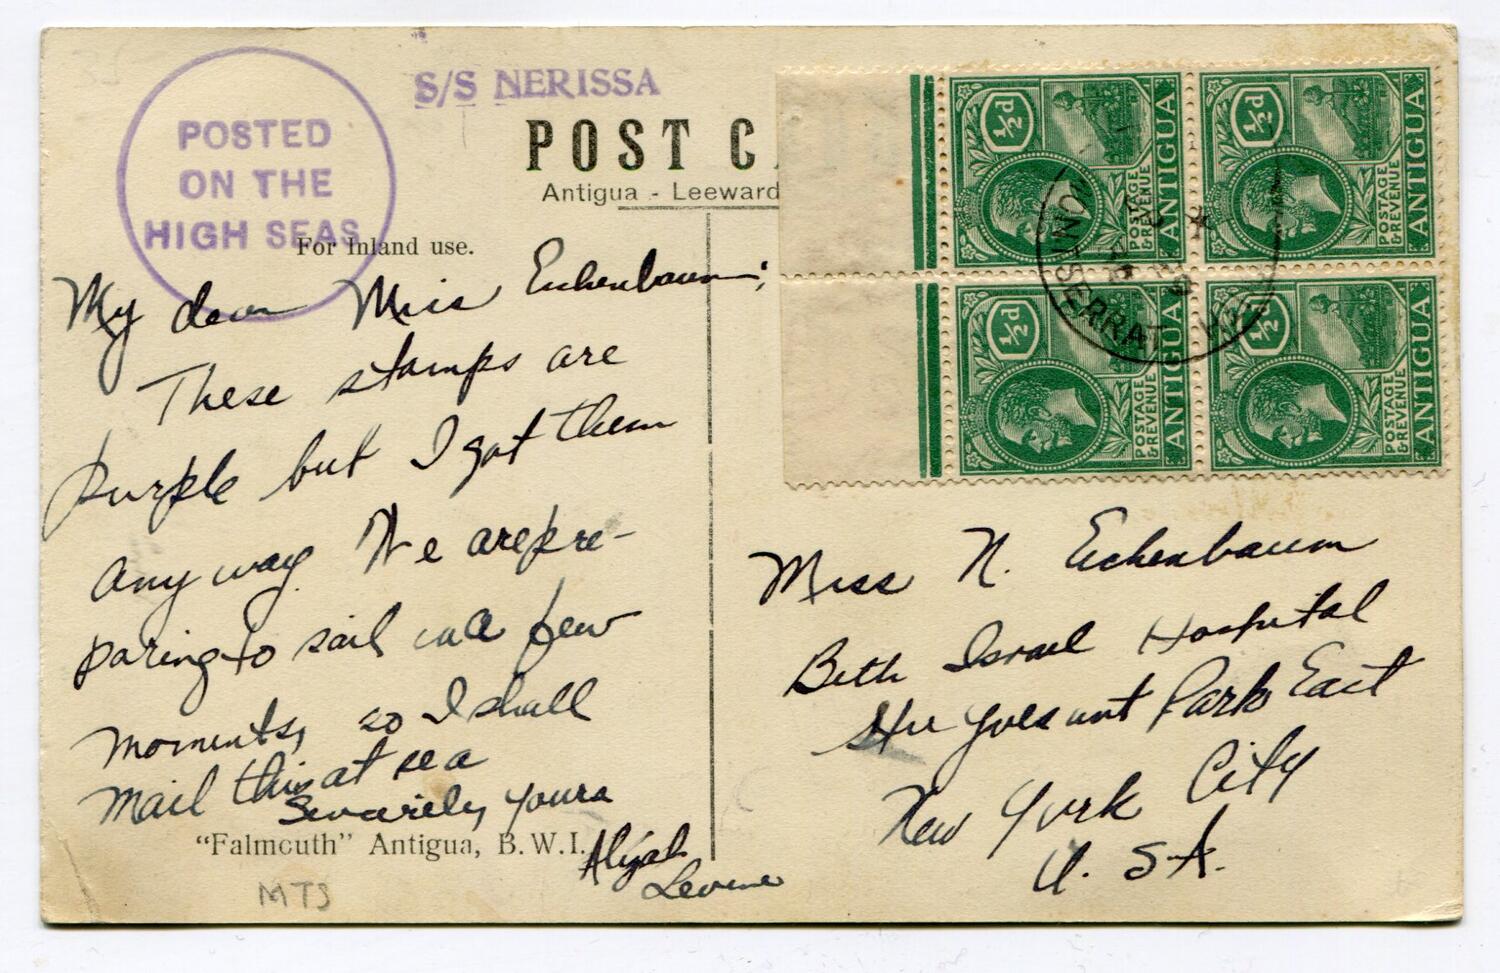 POSTED
ON THE
HIGH SEAS
S/S NERISSA
POST C
Antigua - Leeward
For Inland use.
My dear Miss Eichenbaum;
These stamps are
purple but I got them
anyway. We are pre-
paring to sail in a few
moments, so I shall
mail this at sea
Sincerely yours
Alijah
Levine
"Falmouth" Antigua, B.W.I.
MTS
½d
POSTAGE
& REVENUE
ANTIGUA
½d
POSTAGE
& REVENUE
ANTIGUA
½d
POSTAGE
& REVENUE
ANTIGUA
½d
POSTAGE
& REVENUE
ANTIGUA
MONTSERRAT
Miss N. Eichenbaum
Beth Israel Hospital
Stuyvesant Park East
New York City
U.S.A.